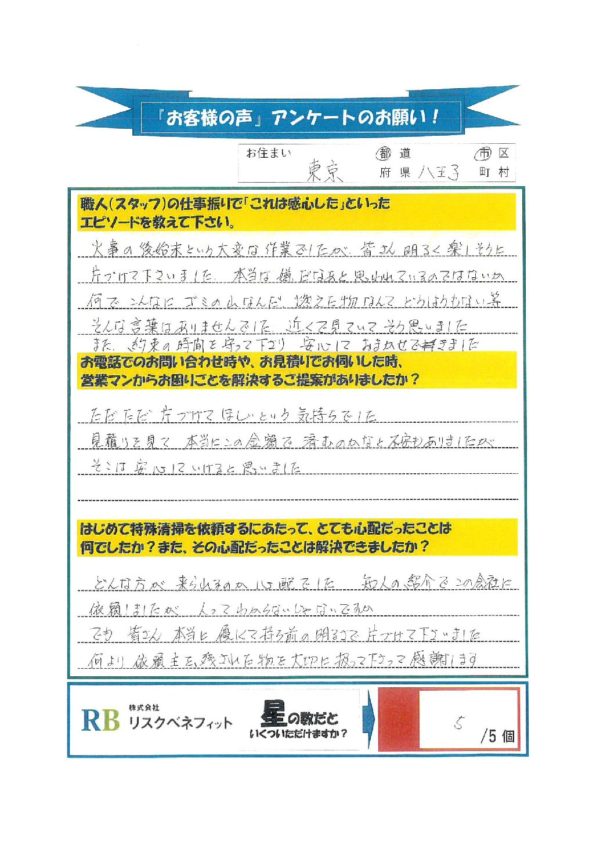 『お客様の声』アンケートのお願い!
お住まい 東京 都道府県 八王子 市区町村
職人(スタッフ)の仕事振りで「これは感心した」といった
エピソードを教えて下さい。
火事の後始末という大変な作業でしたが 皆さん明るく楽しそうに
片づけて下さいました 本当は嫌だなぁと思われているのではないか
何でこんなにゴミの山なんだ 燃えた物なんてどうしようもない等
そんな言葉はありませんでした 近くで見ていてそう思いました
また、約束の時間を守って下さり 安心しておまかせで
お電話でのお問い合わせ時や、お見積りでお伺いした時、
営業マンからお困りごとを解決するご提案がありましたか?
ただただ 片づけてほしいという気持ちでした
見積りを見て 本当にこの金額で済むのかなと不安もありましたが
そこは安心していけると思いました
はじめて特殊清掃を依頼するにあたって、とても心配だったことは
何でしたか?また、その心配だったことは解決できましたか?
どんな方が来られるのか心配でした 知人の紹介でこの会社に
依頼しましたが 人ってわからないじゃないですか
でも 皆さん本当に優しくて持ち前の明るさで片づけて下さいました
何より依頼主を、残された物を大切に扱って下さって感謝します
RB 株式会社 リスクベネフィット
星の数だと
いくついただけますか?
5 /5個